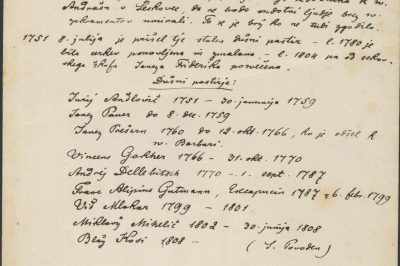 Andraža v Leskovec, da se bodo ondotni ljudje brez sv.
zakramentov umirali. To se je baj ko ne tudi zgodilo.
1751 8. julija je prišel tje stalni dušni pastir – l. 1780 je
bila cerkev ponovljena in zmalana – l. 1804 pa od sekov-
skega škofa Janeza Friderika posvečena.
Dušni pastirje:
Jurij Andlovič 1751 – 30. januarja 1759
Janez Paver do 8. dec. 1759
Janez Prešern 1760 do 12. okt. 1766, ko je odšel k
sv. Barbari.
Vincenc Gokher 1766 – 31. okt. 1770
Andrej Dellebitsch 1770 – 1. sept. 1787
Franc Alipius Gutmann, Excapucin 1787 – 6. febr. 1799
Vid Mlakar 1799 – 1801
Miklavž Mihelič 1802 – 30. junija 1808
Blaž Kosi 1808 – (J. Povoden)